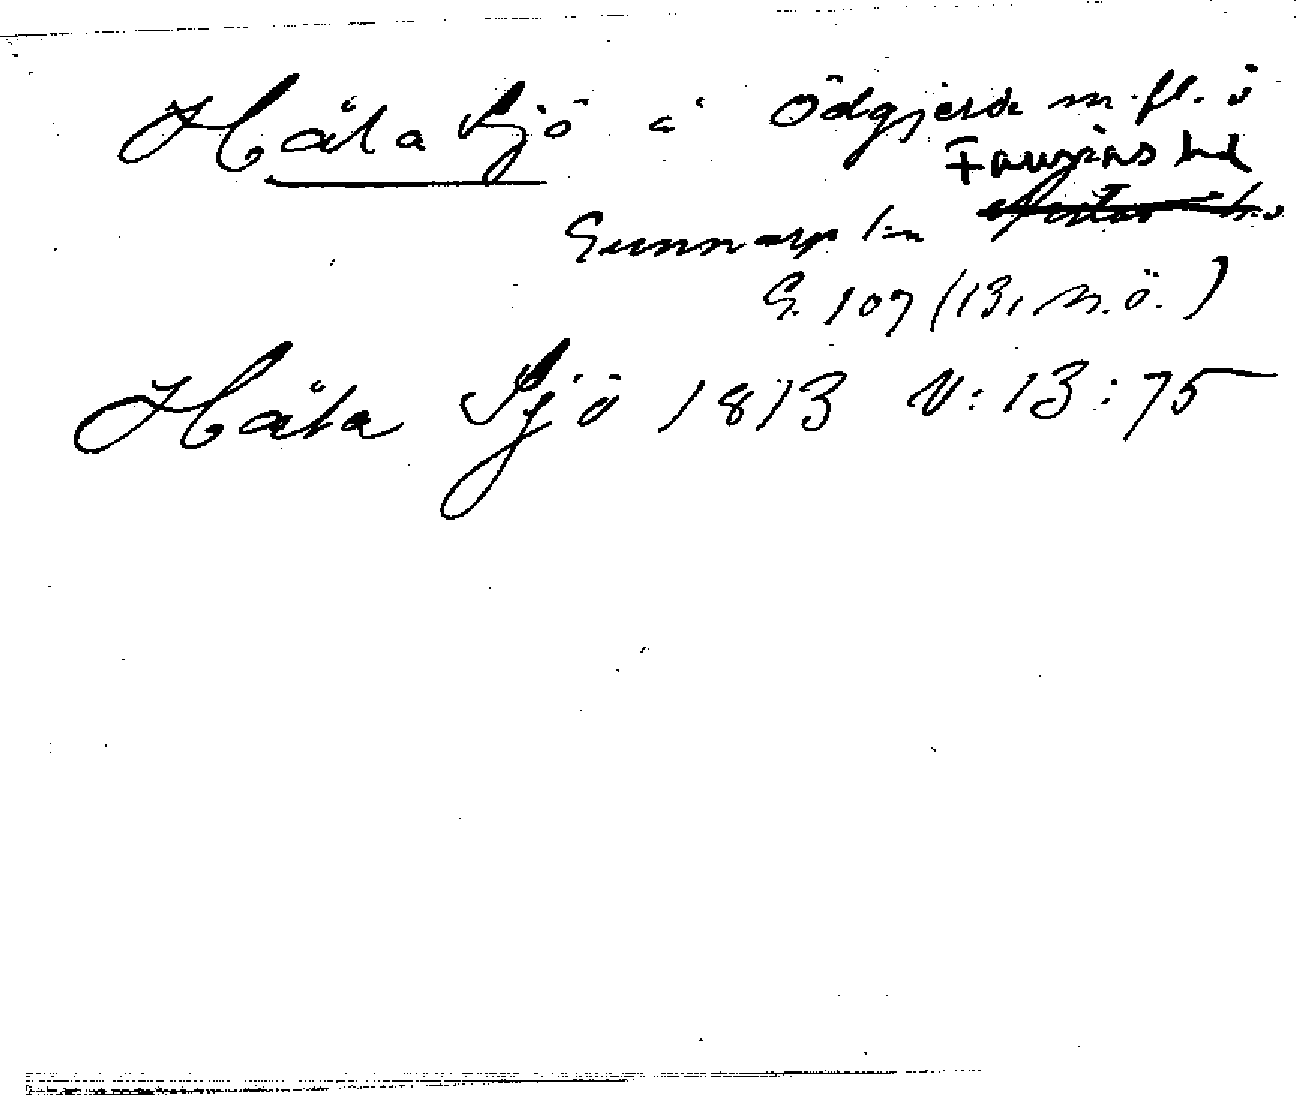 Håla Sjö å Ödgjerde m.fl. i
Faurås hd
Gunnarp sn
G. 107 (13, n.ö.)
Håla Sjö 1873 V:13:75